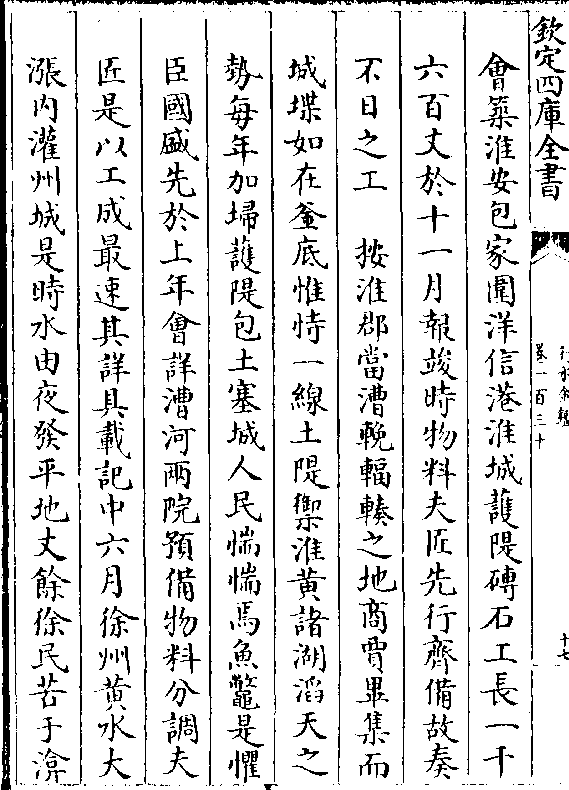 欽定四庫全書
行水金鑑
卷一百三十
十七
會築淮安包家圍洋信港淮城護隄磚石工長一千
六百丈於十一月報竣時物料夫匠先行齊備故奏
不日之工　按淮郡當漕輓輻輳之地商賈畢集而
城堞如在釜底惟恃一線土隄禦淮黃諸湖滔天之
勢每年加埽護隄包土塞城人民惴惴焉魚鼈是懼
臣國盛先於上年會詳漕河兩院預備物料分調夫
匠是以工成最速其詳具載記中六月徐州黃水大
漲内灌州城是時水由夜發平地丈餘徐民苦于渰